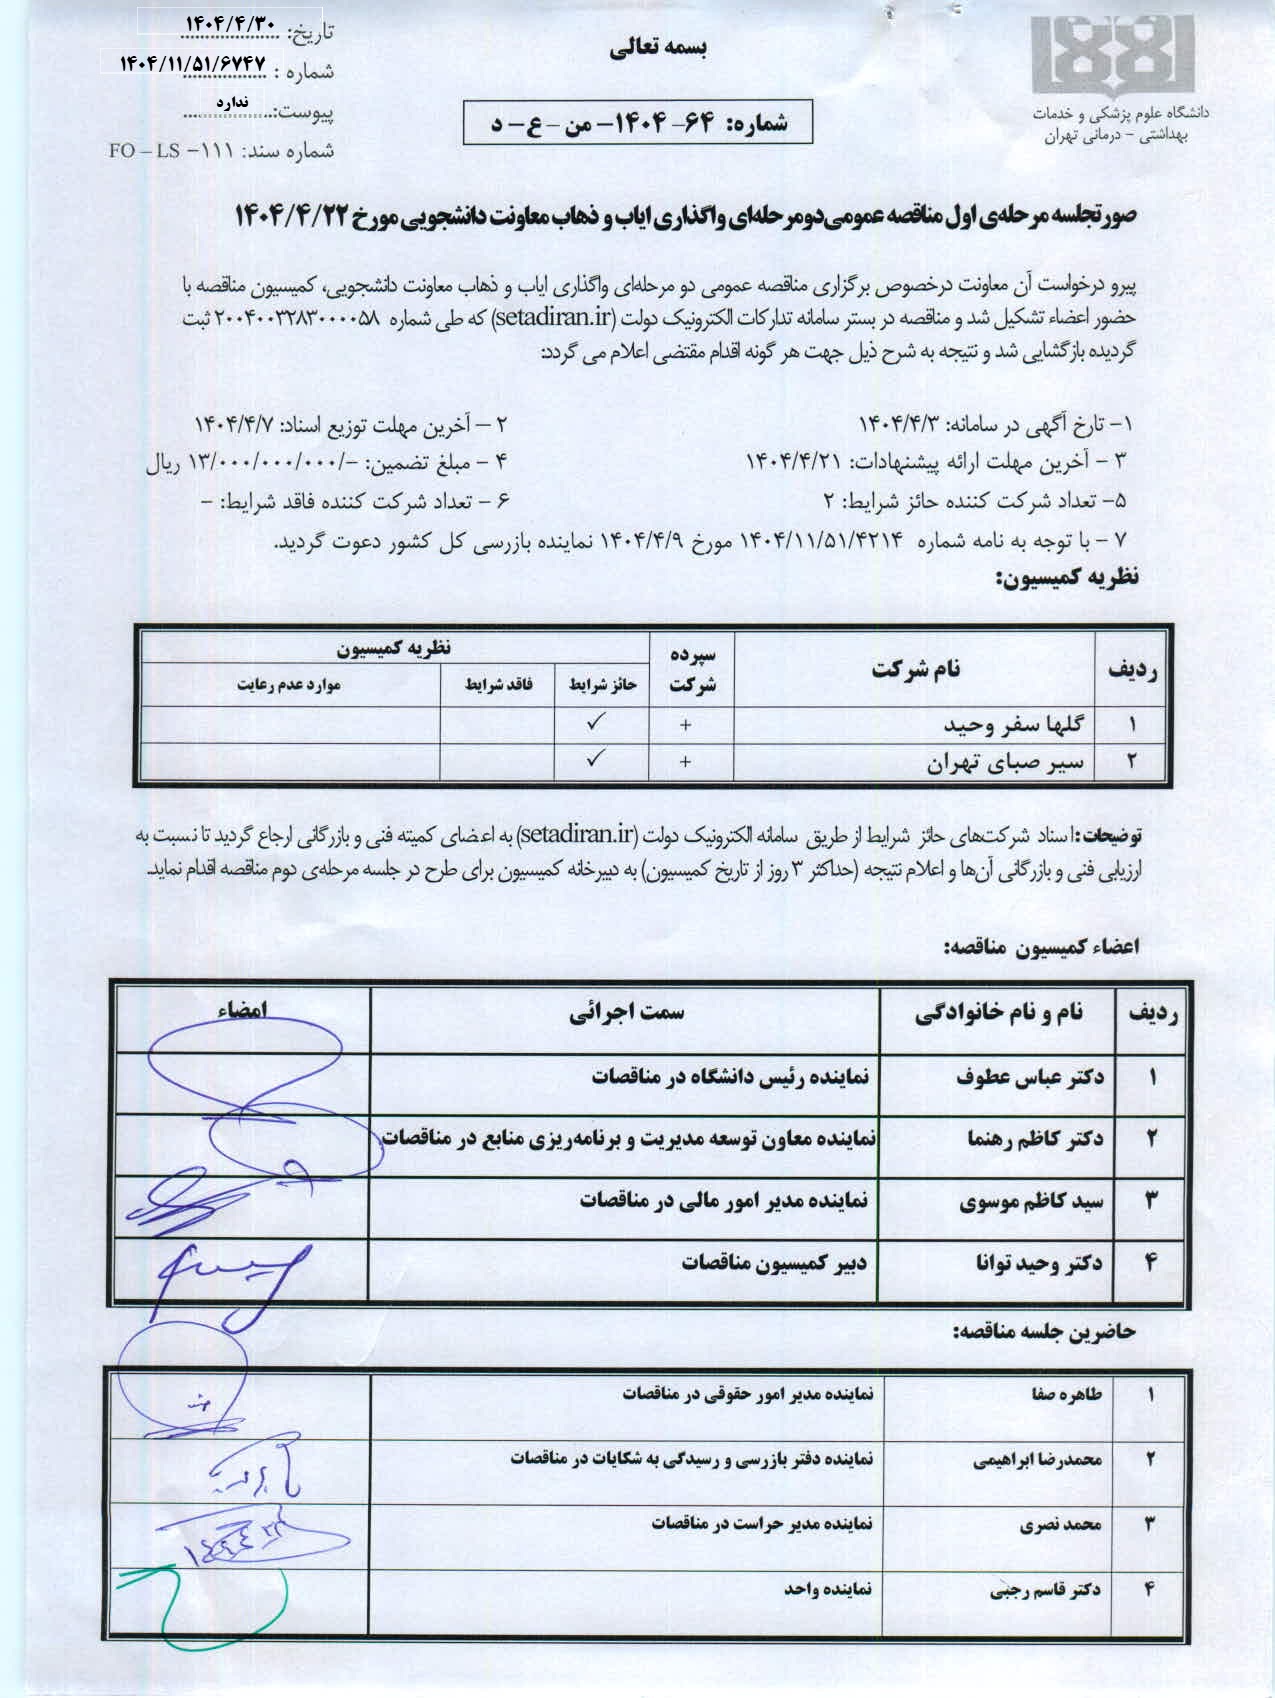 تاریخ: ۱۴۰۴/۴/۳۰
شماره : ۱۴۰۴/۱۱/۵۱/۶۷۴۷
پیوست: ندارد
شماره سند: ۱۱۱– FO – LS
بسمه تعالی
شماره: ۶۴– ۱۴۰۴– من – ع – د
دانشگاه علوم پزشکی و خدمات
بهداشتی – درمانی تهران
صورتجلسه مرحله‌ی اول مناقصه عمومی دومرحله‌ای واگذاری ایاب و ذهاب معاونت دانشجویی مورخ ۱۴۰۴/۴/۲۲
پیرو درخواست آن معاونت درخصوص برگزاری مناقصه عمومی دو مرحله‌ای واگذاری ایاب و ذهاب معاونت دانشجویی، کمیسیون مناقصه با
حضور اعضاء تشکیل شد و مناقصه در بستر سامانه تدارکات الکترونیک دولت (setadiran.ir) که طی شماره ۲۰۰۴۰۰۳۲۸۳۰۰۰۰۵۸ ثبت
گردیده بازگشایی شد و نتیجه به شرح ذیل جهت هر گونه اقدام مقتضی اعلام می گردد:
۱– تارخ آگهی در سامانه: ۱۴۰۴/۴/۳
۲ – آخرین مهلت توزیع اسناد: ۱۴۰۴/۴/۷
۳ – آخرین مهلت ارائه پیشنهادات: ۱۴۰۴/۴/۲۱
۴ – مبلغ تضمین: –/۱۳/۰۰۰/۰۰۰/۰۰۰ ریال
۵– تعداد شرکت کننده حائز شرایط: ۲
۶ – تعداد شرکت کننده فاقد شرایط: –
۷ – با توجه به نامه شماره ۱۴۰۴/۱۱/۵۱/۴۲۱۴ مورخ ۱۴۰۴/۴/۹ نماینده بازرسی کل کشور دعوت گردید.
نظریه کمیسیون:
ردیف نام شرکت سپرده شرکت نظریه کمیسیون
حائز شرایط فاقد شرایط موارد عدم رعایت
۱ گلها سفر وحید + ✓
۲ سیر صبای تهران + ✓
توضیحات: اسناد شرکت‌های حائز شرایط از طریق سامانه الکترونیک دولت (setadiran.ir) به اعضای کمیته فنی و بازرگانی ارجاع گردید تا نسبت به
ارزیابی فنی و بازرگانی آن‌ها و اعلام نتیجه (حداکثر ۳ روز از تاریخ کمیسیون) به دبیرخانه کمیسیون برای طرح در جلسه مرحله‌ی دوم مناقصه اقدام نماید.
اعضاء کمیسیون مناقصه:
ردیف نام و نام خانوادگی سمت اجرائی امضاء
۱ دکتر عباس عطوف نماینده رئیس دانشگاه در مناقصات
۲ دکتر کاظم رهنما نماینده معاون توسعه مدیریت و برنامه‌ریزی منابع در مناقصات
۳ سید کاظم موسوی نماینده مدیر امور مالی در مناقصات
۴ دکتر وحید توانا دبیر کمیسیون مناقصات
حاضرین جلسه مناقصه:
۱ طاهره صفا نماینده مدیر امور حقوقی در مناقصات
۲ محمدرضا ابراهیمی نماینده دفتر بازرسی و رسیدگی به شکایات در مناقصات
۳ محمد نصری نماینده مدیر حراست در مناقصات
۴ دکتر قاسم رجبی نماینده واحد